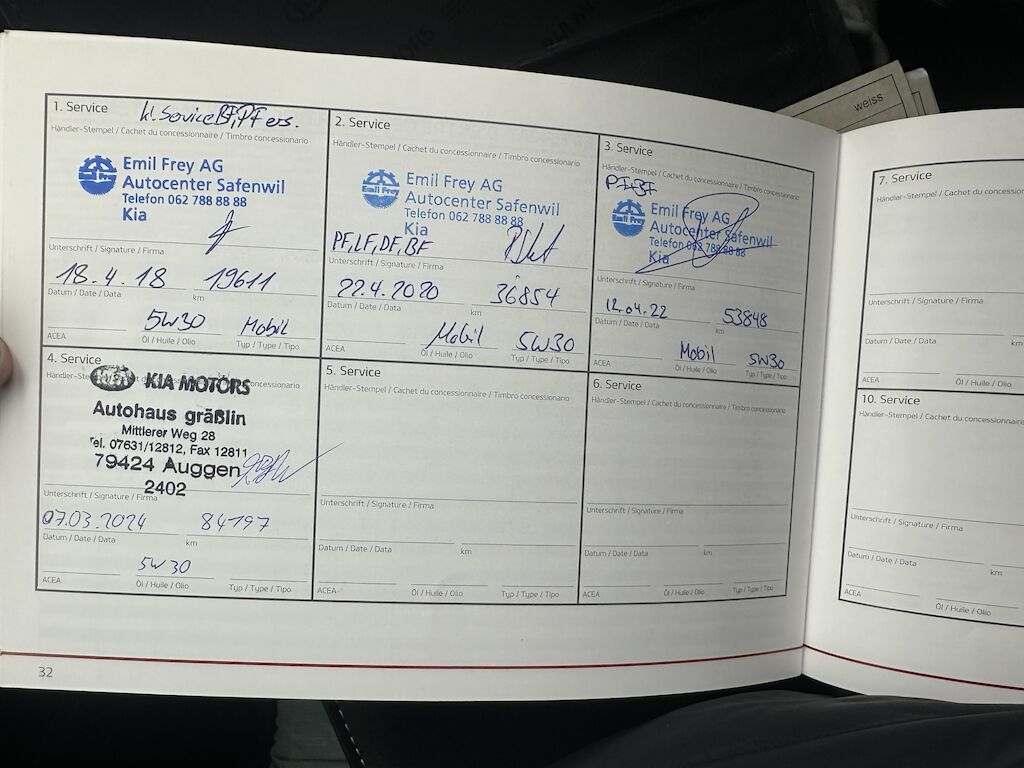 weiss
1. Service
kl. Service BF, PF ers.
Händler-Stempel / Cachet du concessionnaire / Timbro concessionario
Emil Frey AG
Autocenter Safenwil
Telefon 062 788 88 88
Kia
Unterschrift / Signature / Firma
18.4.18 19611
Datum / Date / Data km
5W30 Mobil
ACEA Öl / Huile / Olio Typ / Type / Tipo
2. Service
Händler-Stempel / Cachet du concessionnaire / Timbro concessionario
Emil Frey
Emil Frey AG
Autocenter Safenwil
Telefon 062 788 88 88
Kia
PF, LF, DF, BF
Unterschrift / Signature / Firma
22.4.2020 36854
Datum / Date / Data km
Mobil 5W30
ACEA Öl / Huile / Olio Typ / Type / Tipo
3. Service
Händler-Stempel / Cachet du concessionnaire / Timbro concessionario
PF+BF
Emil Frey
Emil Frey AG
Autocenter Safenwil
Telefon 062 788 88 88
Kia
Unterschrift / Signature / Firma
12.04.22 53848
Datum / Date / Data km
Mobil 5W30
ACEA Öl / Huile / Olio Typ / Type / Tipo
4. Service
Händler-Stempel concessionnaire / Timbro concessionario
KIA KIA MOTORS
Autohaus gräßlin
Mittlerer Weg 28
Tel. 07631/12812, Fax 12811
79424 Auggen
2402
Unterschrift / Signature / Firma
07.03.2024 84797
Datum / Date / Data km
5W30
ACEA Öl / Huile / Olio Typ / Type / Tipo
5. Service
Händler-Stempel / Cachet du concessionnaire / Timbro concessionario
Unterschrift / Signature / Firma
Datum / Date / Data km
ACEA Öl / Huile / Olio Typ / Type / Tipo
6. Service
Händler-Stempel / Cachet du concessionnaire / Timbro concessionario
Unterschrift / Signature / Firma
Datum / Date / Data km
ACEA Öl / Huile / Olio Typ / Type / Tipo
32
7. Service
Händler-Stempel / Cachet du concession
Unterschrift / Signature / Firma
Datum / Date / Data km
ACEA Öl / Huile / Olio
10. Service
Händler-Stempel / Cachet du concession
Unterschrift / Signature / Firma
Datum / Date / Data km
ACEA Öl / Huile / Olio